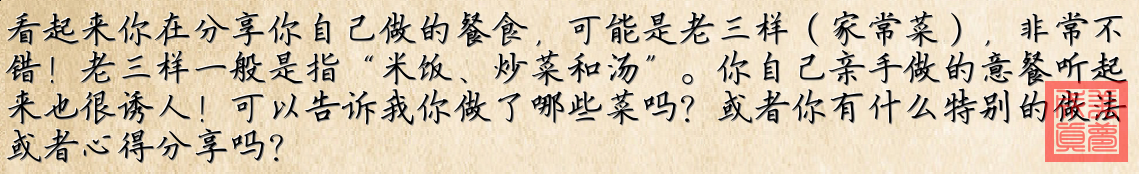 看起来你在分享你自己做的餐食，可能是老三样（家常菜），非常不
错！老三样一般是指“米饭、炒菜和汤”。你自己亲手做的意餐听起
来也很诱人！可以告诉我你做了哪些菜吗？或者你有什么特别的做法
或者心得分享吗？